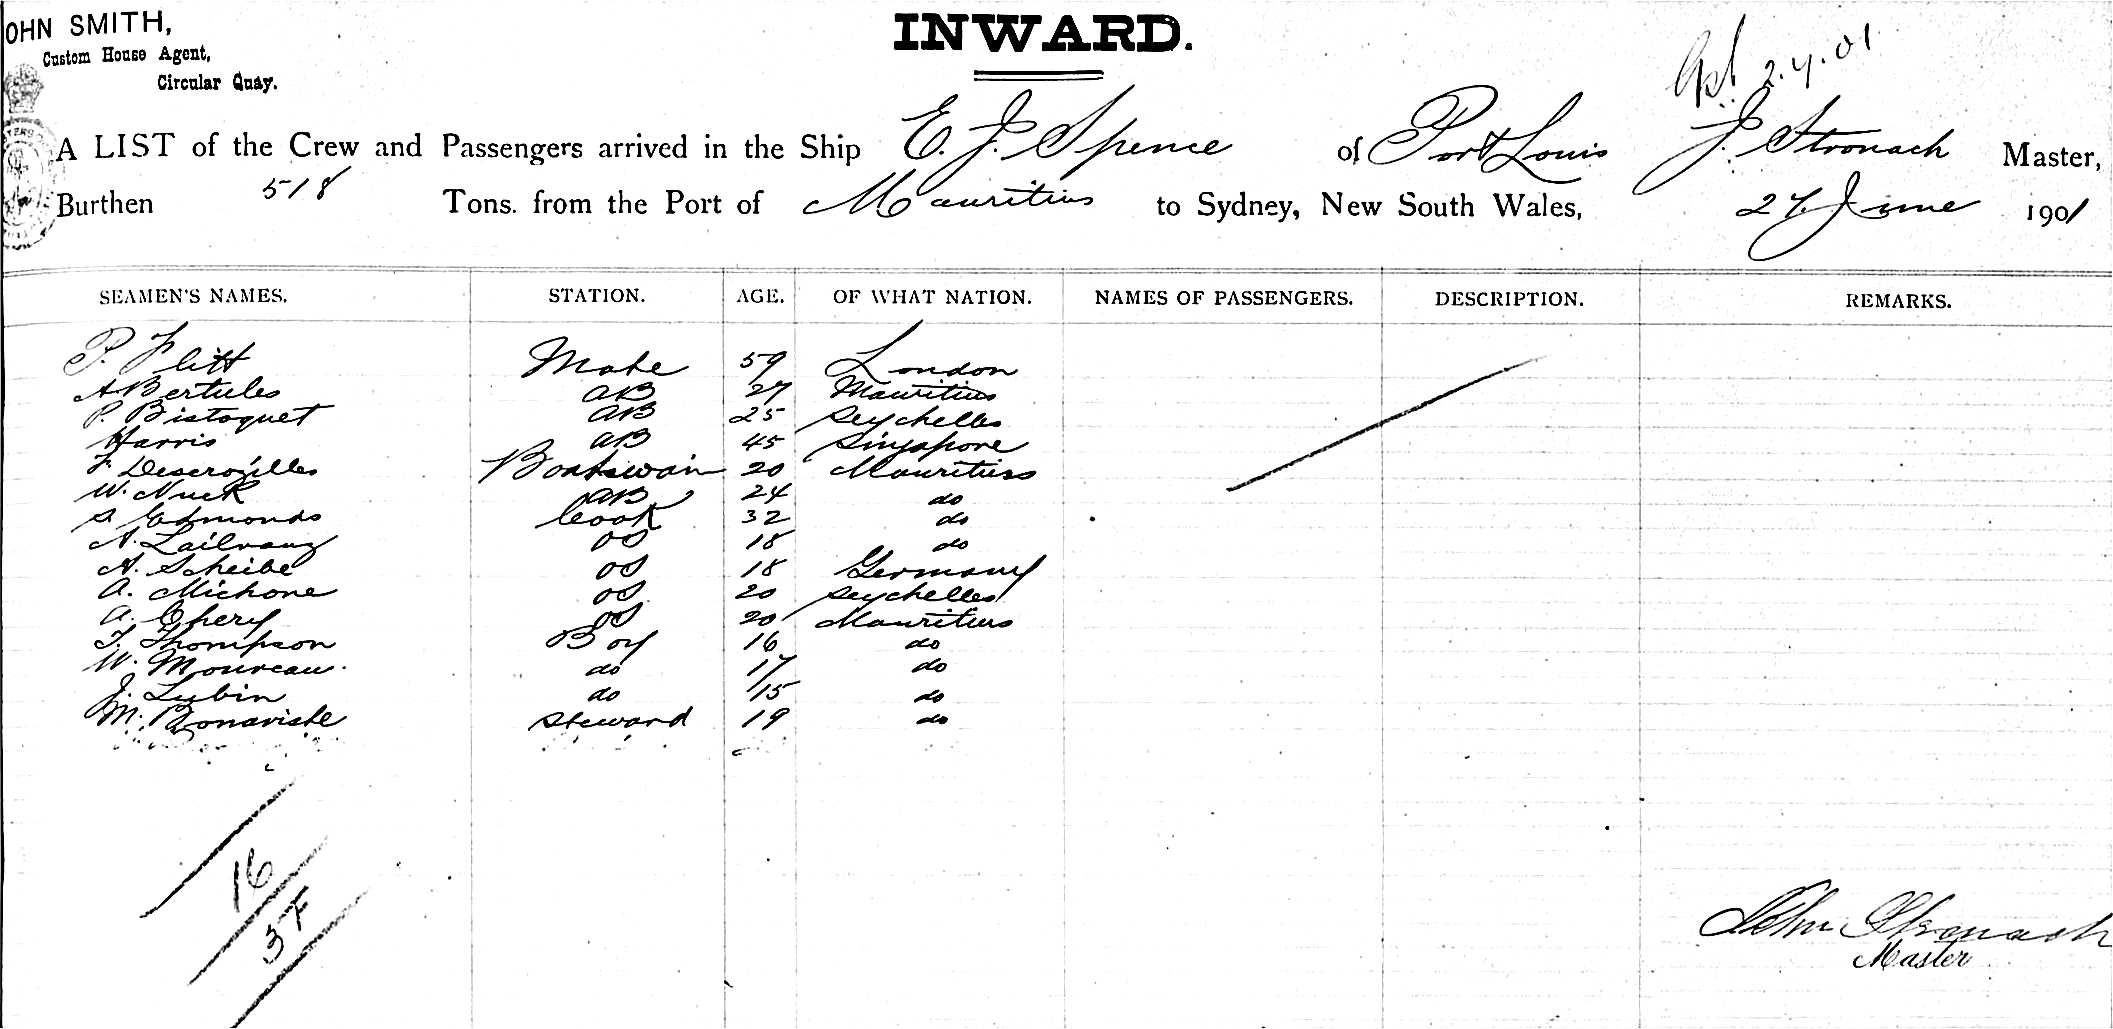 OHN SMITH,
Custom House Agent,
Circular Quay.
INWARD.
2.7.01
A LIST of the Crew and Passengers arrived in the Ship E. J. Spence of Port Louis J. Stronach Master,
Burthen 518 Tons. from the Port of Mauritius to Sydney, New South Wales, 27 June 1901
SEAMEN'S NAMES. STATION. AGE. OF WHAT NATION. NAMES OF PASSENGERS. DESCRIPTION. REMARKS.
P. Flitt Mate 59 London
A Bertules AB 27 Mauritius
P. Bistoquet AB 25 Seychelles
Harris AB 45 Singapore
F. Descroizilles Boatswain 20 Mauritius
W. Nuck AB 24 do
S. Edmonds Cook 32 do
A. OS 18 do
A. Scheibe OS 18 Germany
A. Michone OS 20 Seychelles
A. Chery OS 20 Mauritius
T. Thompson Boy 16 do
W. Moureau do 17 do
J. Lubin do 15 do
M. Bonaviste Steward 19 do
16
37
John Stronach
Master